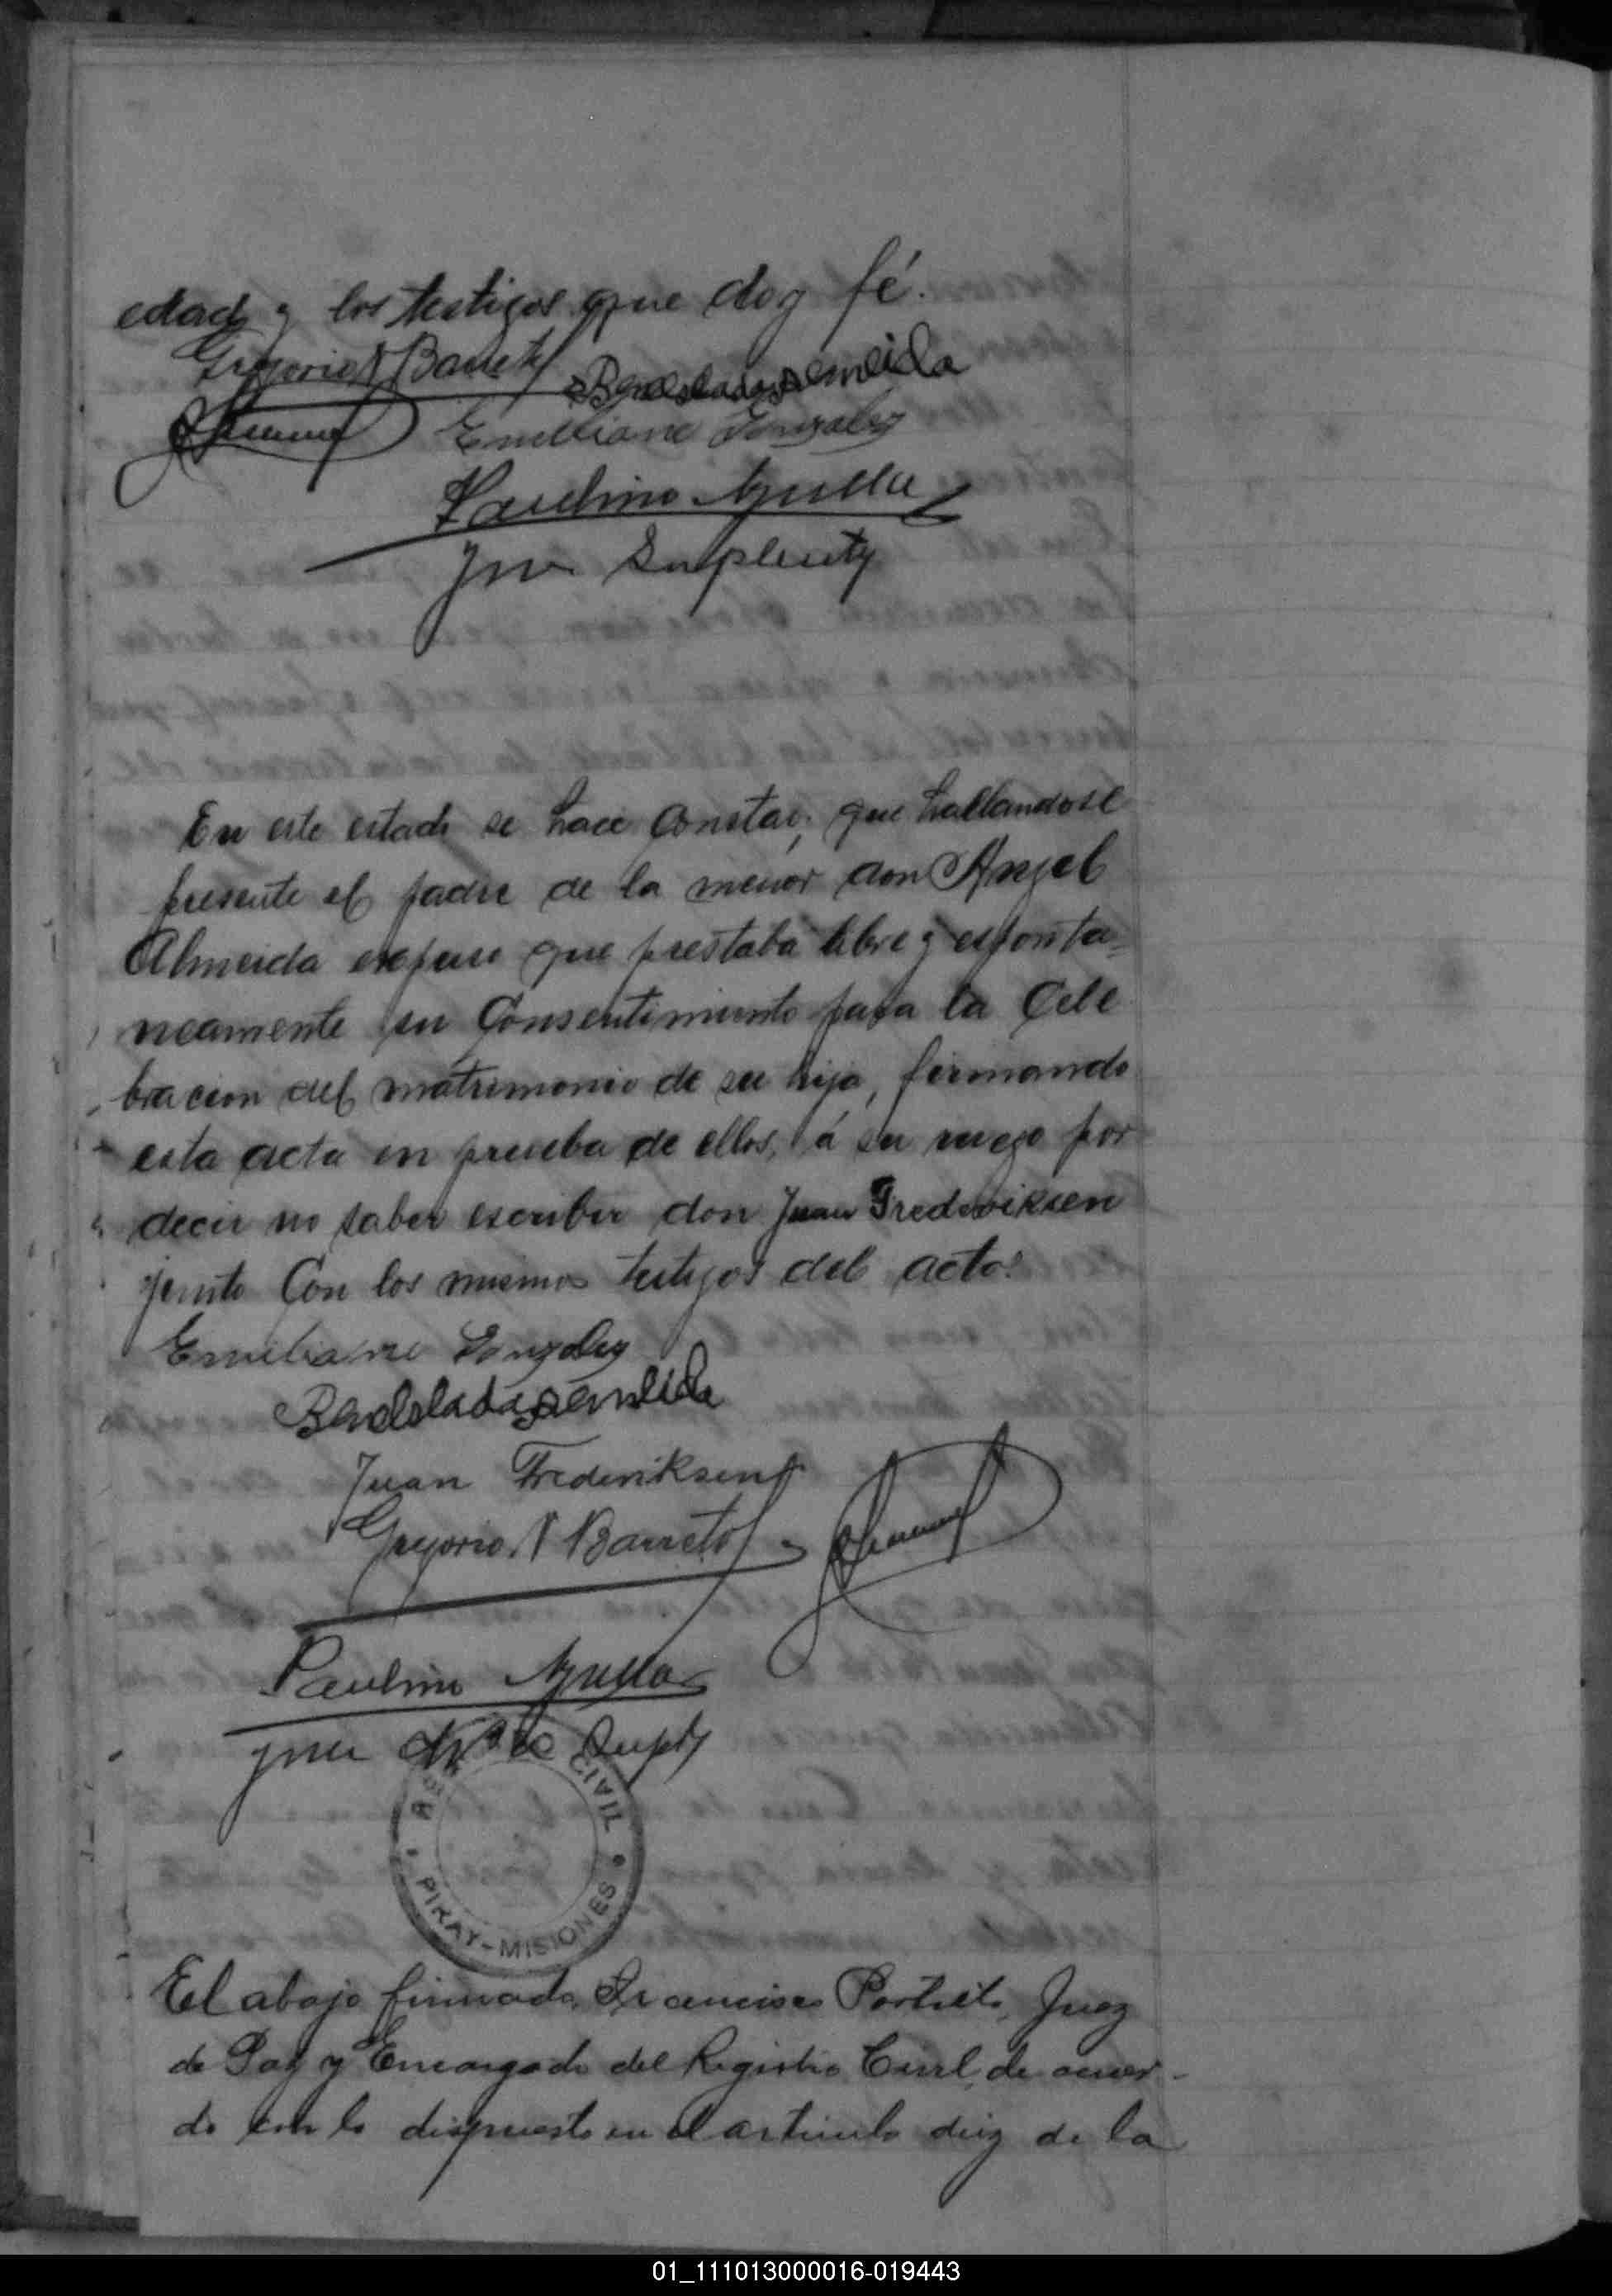 edad y los testigos que doy fé.
Gregorio N Barreto
Emiliano Gonzalez
Paulino
Juez Suplente
En este estado se hace constar, que hallandose
presente el padre de la menor don Angel
Almeida expuso que prestaba libre y esponta-
neamente su Consentimiento para la Cele
bracion del matrimonio de su hija, firmando
esta acta en prueba de ellos, á su ruego por
decir no saber escribir don Juan Frederiksen
junto Con los mismos testigos del acto.
Emiliano Gonzalez
Juan Frederiksen
Gregorio N Barreto
Paulino
Juez de Paz Suplte
CIVIL
PIRAY-MISIONES
El abajo firmado, Francisco Portist, Juez
de Paz y Encargado del Registro Civil, de acuer-
do con lo dispuesto en el articulo diez de la
01_111013000016-019443